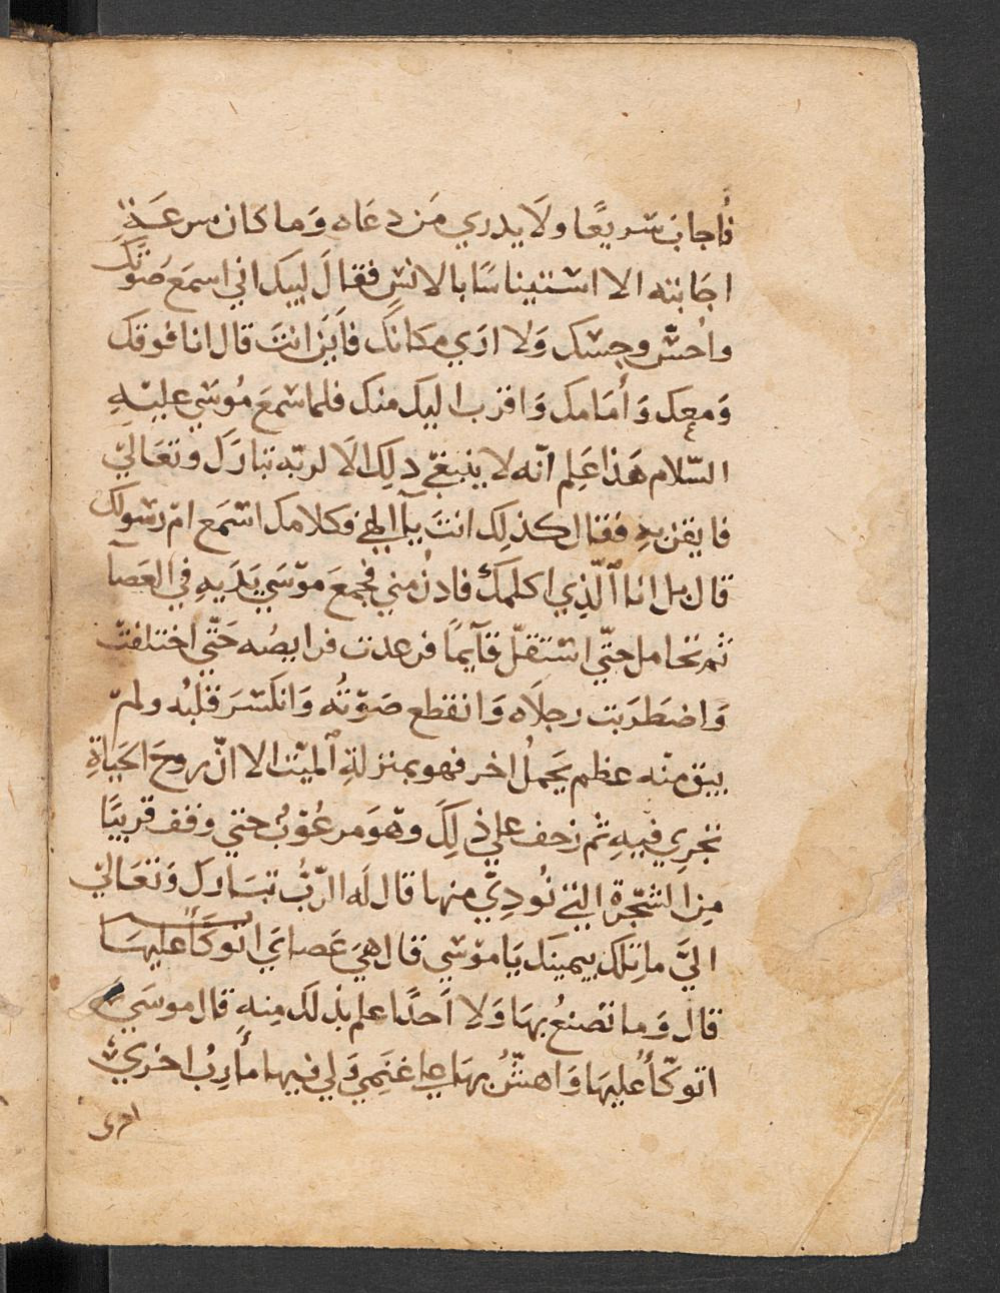 فأجاب سريعًا ولَا يدري مَن دعَاه وَما كان سرعَة
اجَابته الا استيناسًا بالانسِ فقالَ لبيك اني اسمَع صَوتَك
واُحسّ وجسَك وَلا ارَي مكانَك فاَينَ انتَ قال انا فوقكَ
وَمعك وَأمَامك وَاقرب اليك منك فلما سَمعَ مُوسَي عليهِ
السّلام هَذا عَلِم انّه لا ينبغيّ ذلِك الَا لربّه تبارَكَ وتعَاليَ
فايقن بهِ فقال كذلِك انتَ يآ الهي فكلامك اسْمَع ام رسولك
قال بل انا الَّذِي اكلمكَ فادنُ مني فجمعَ موسَي يَدَيهِ في العَصآ
ثم تحَامل حتّي استَقلّ قآيمًا فرعدت فرايصُه حَتّي اختلفتْ
وَاضطَرَبت رجلَاه وَانقطع صَوْتُه وَانكَسَرَ قلبُه ولم
يبق منه عظم يَحملُ اخر فهو بمنزلةِ الميّت الا انّ روحَ الحَياةِ
تجرِي فيهِ ثم زحف علي ذلِكَ وهوَ مرعُوبٌ حتي وقف قريبًا
مِن الشّجَرة التي نُودِيَ منها قال لَه الرّبُّ تبَارك وَتعَاليَ
اليَّ ما تِلك بيمينك يَا موسَي قال هيَ عَصَايَ اتوكّأ عليهَا
قال وَما تصْنعُ بهَا وَلا اَحدًا علم بذلك مِنهِ قال موسَي
اتوكّأُ عليهَا وَاهشُّ بهَا علي غنَمِي وَلي فيها مأرِبُ اخرَي